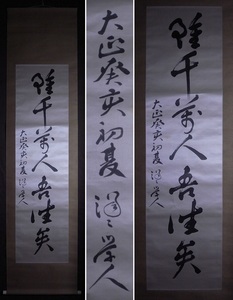 雖千萬人吾往矣
大正癸亥初夏 学人
大正癸亥初夏 学人
雖千萬人吾往矣
大正癸亥初夏 学人